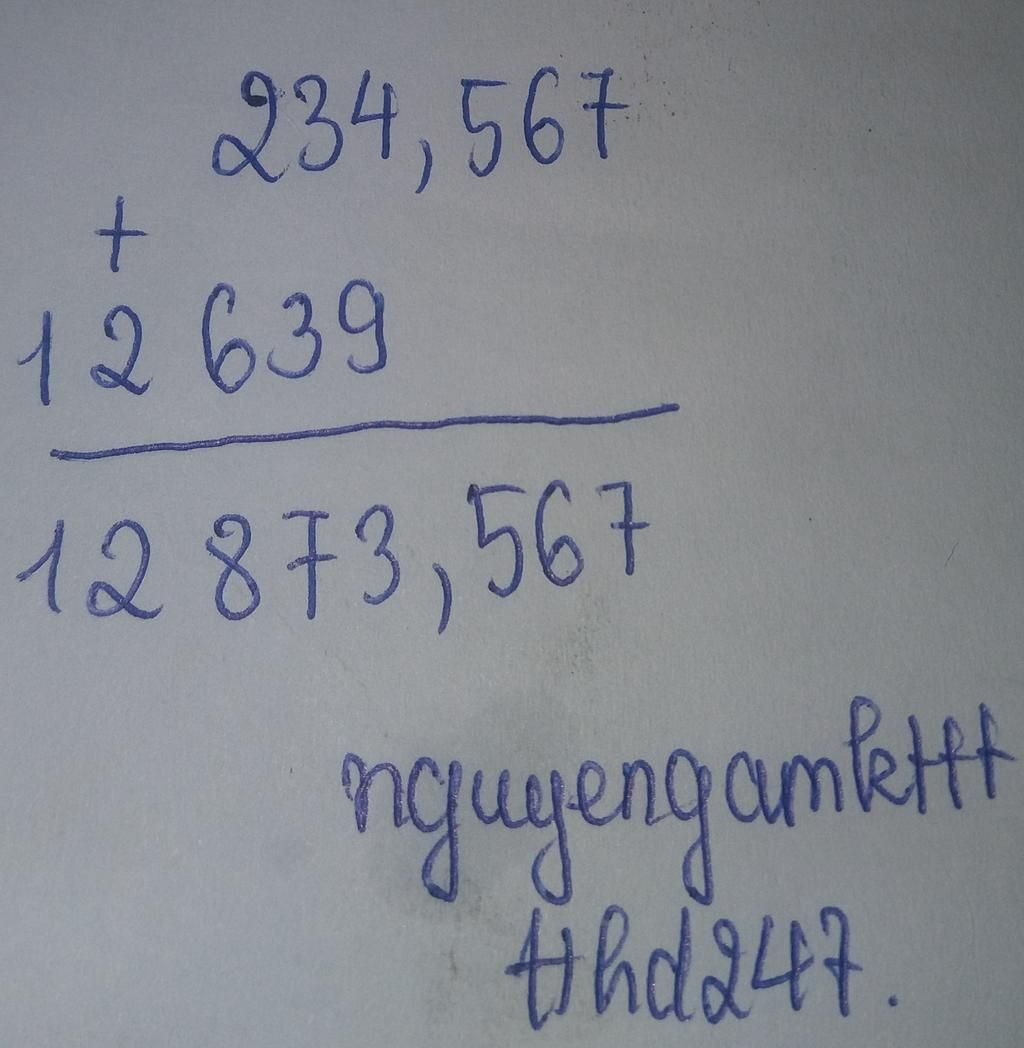 234,567
+
12 639
12 873,567
nguyengamkttt
tthd247.